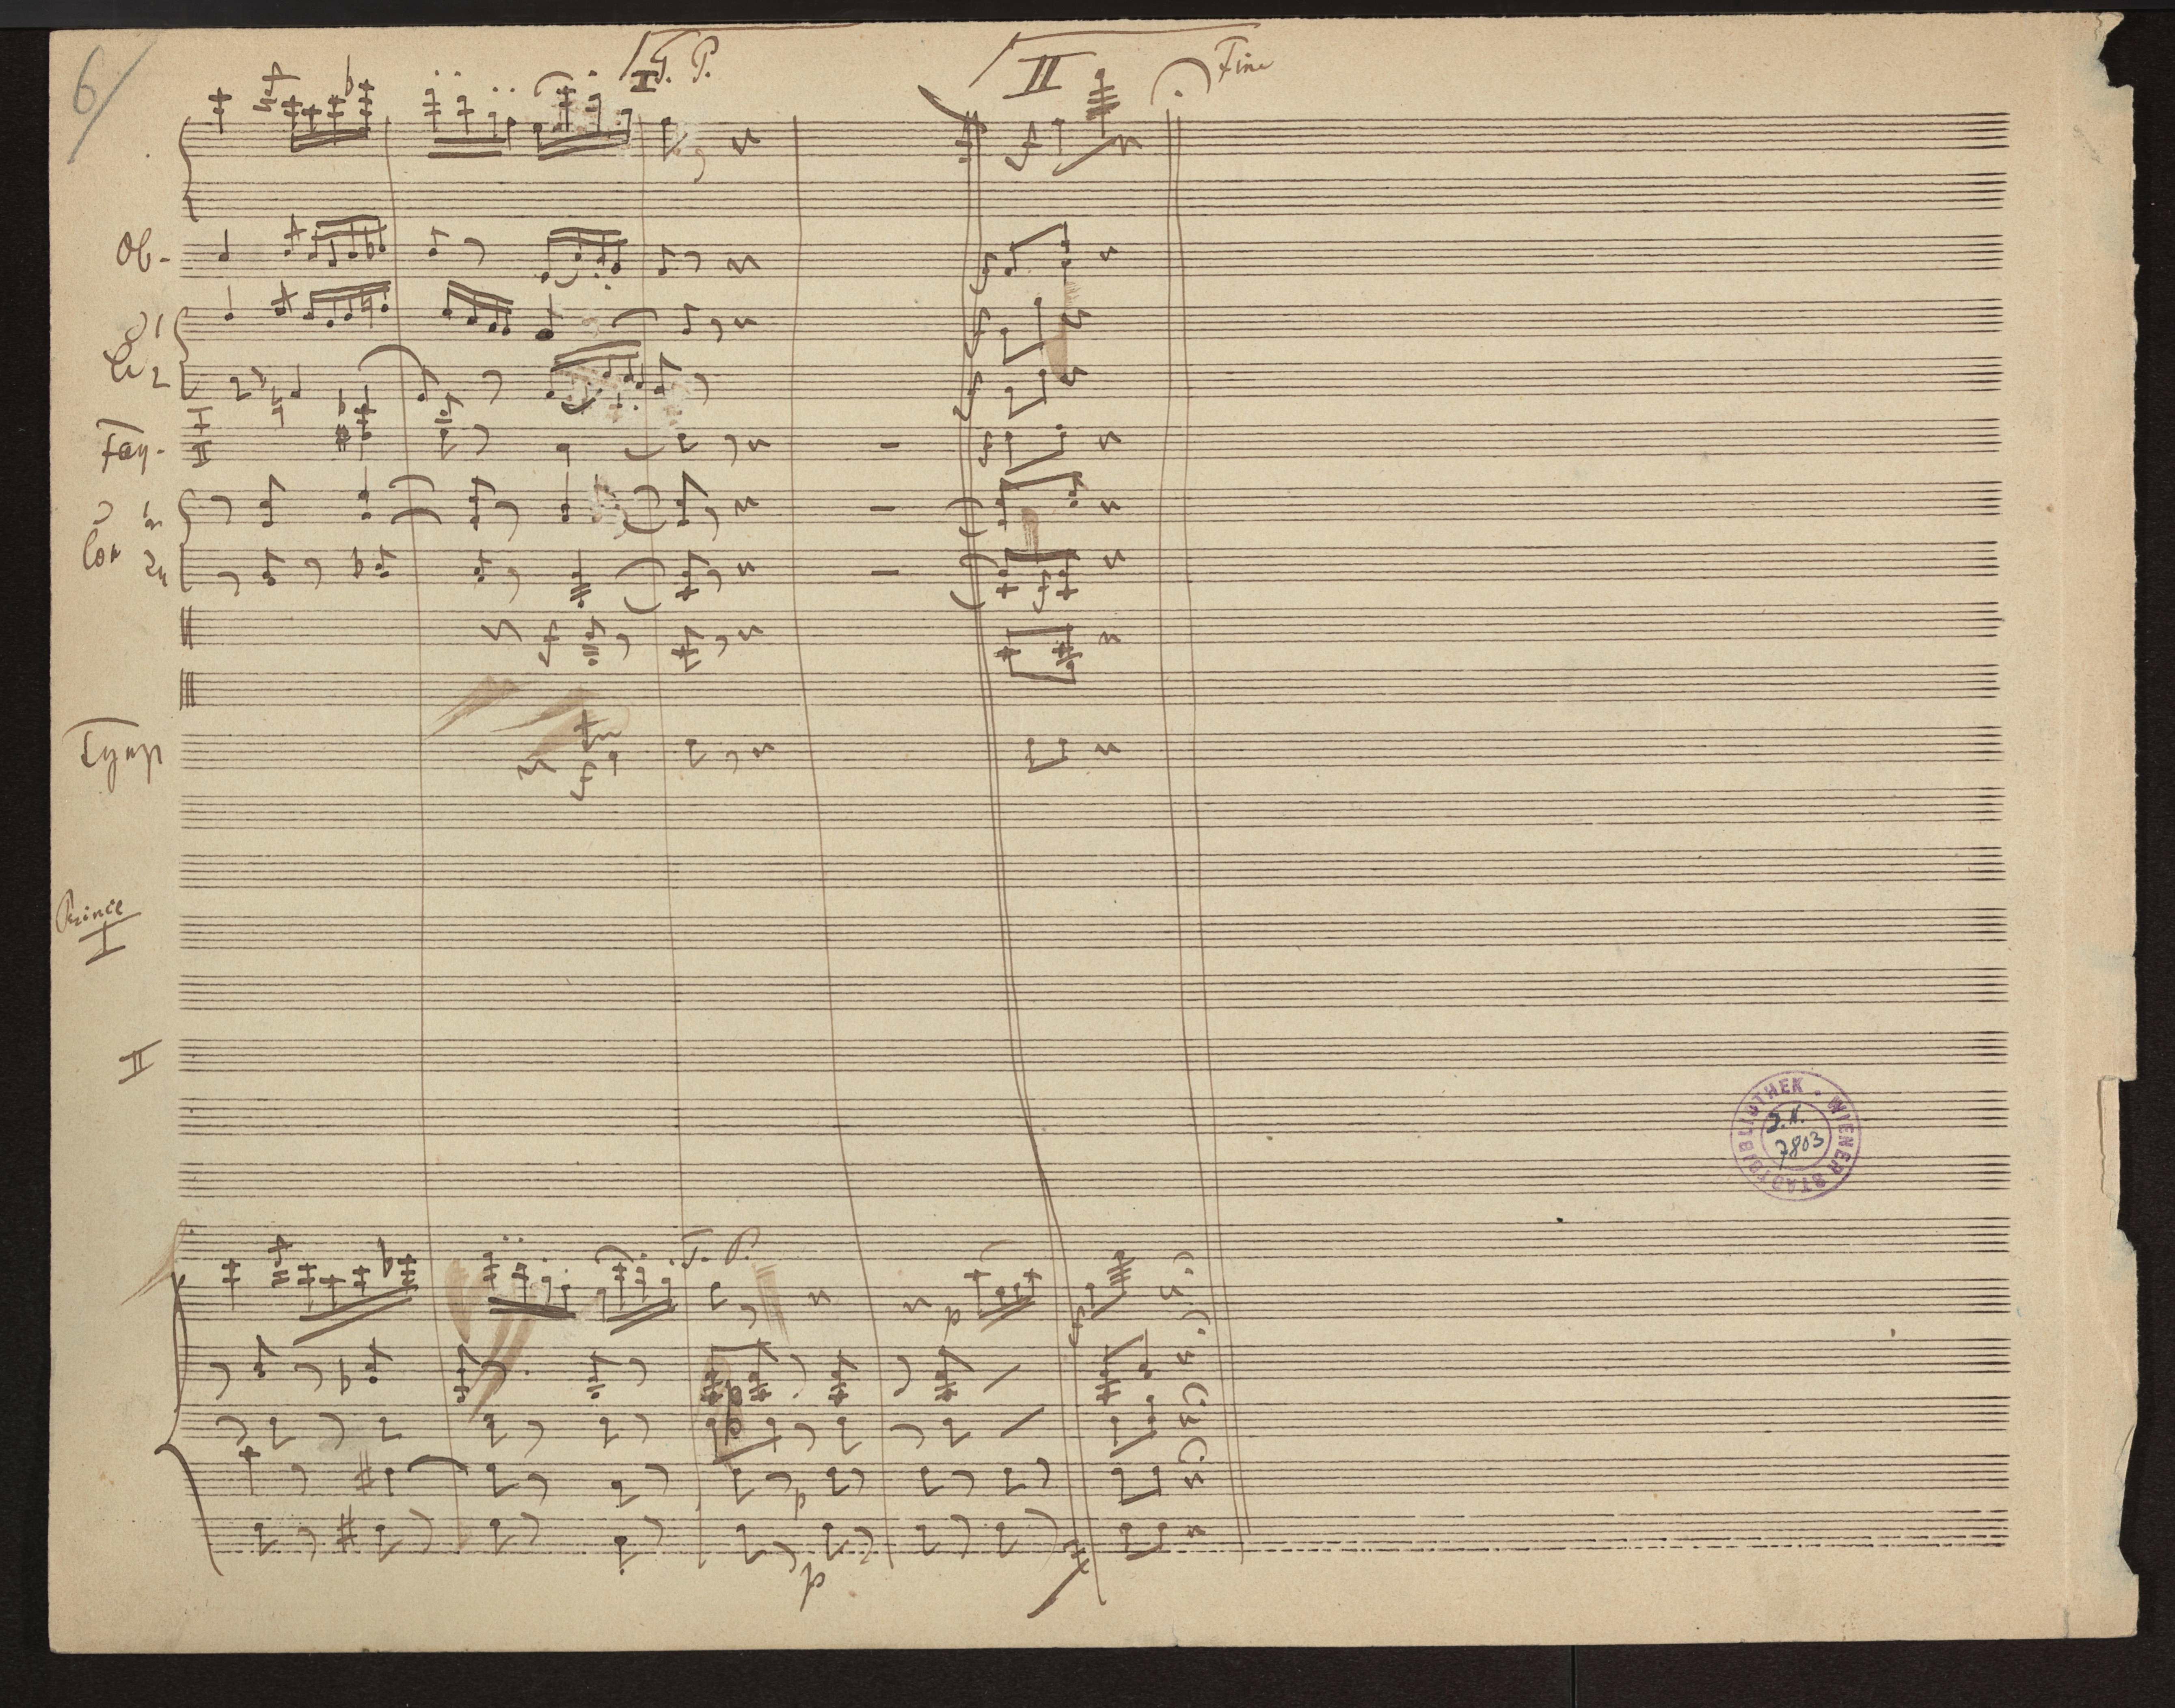 6/
I G. P.
II
Fine
f
Ob.
1
Cl 2
f
f
f
Fag. I
II
f
Cor 1
2
f
f
Tymp
tr
f
Prince
I
II
G. P.
p
f
p
p
p
p
WIENER STADTBIBLIOTHEK
J.N.
7803